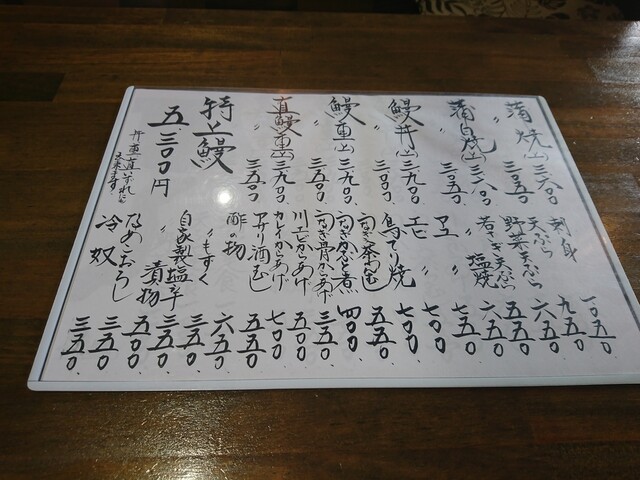 蒲焼(上)三六〇〇
〃 三一五〇
蒲白焼(上)三六〇〇
〃 三一五〇
鰻丼(上)三九〇〇
〃 三一〇〇
鰻重(上)三九〇〇
〃 三一五〇
直鰻重(上)三九〇〇
〃 三五〇〇
特上鰻
五.三〇〇円
丼重直いずれに
出来ます
刺身 一〇五〇
天ぷら 九五〇
野菜天ぷら 六五〇
若さぎ天ぷら 五五〇
〃 塩焼 六五〇
〃 七五〇
鳥てり焼 七〇〇
うなぎ茶わんむし 五五〇
うなぎかぶと煮 四〇〇
うなぎ骨からあげ 三五〇
川エビからあげ 五〇〇
カレイからあげ 七〇〇
アサリ酒むし 五五〇
酢の物 六五〇
〃 もずく 三五〇
自家製塩辛 三五〇
〃 漬物 五〇〇
なめこおろし 三五〇
冷奴 三五〇